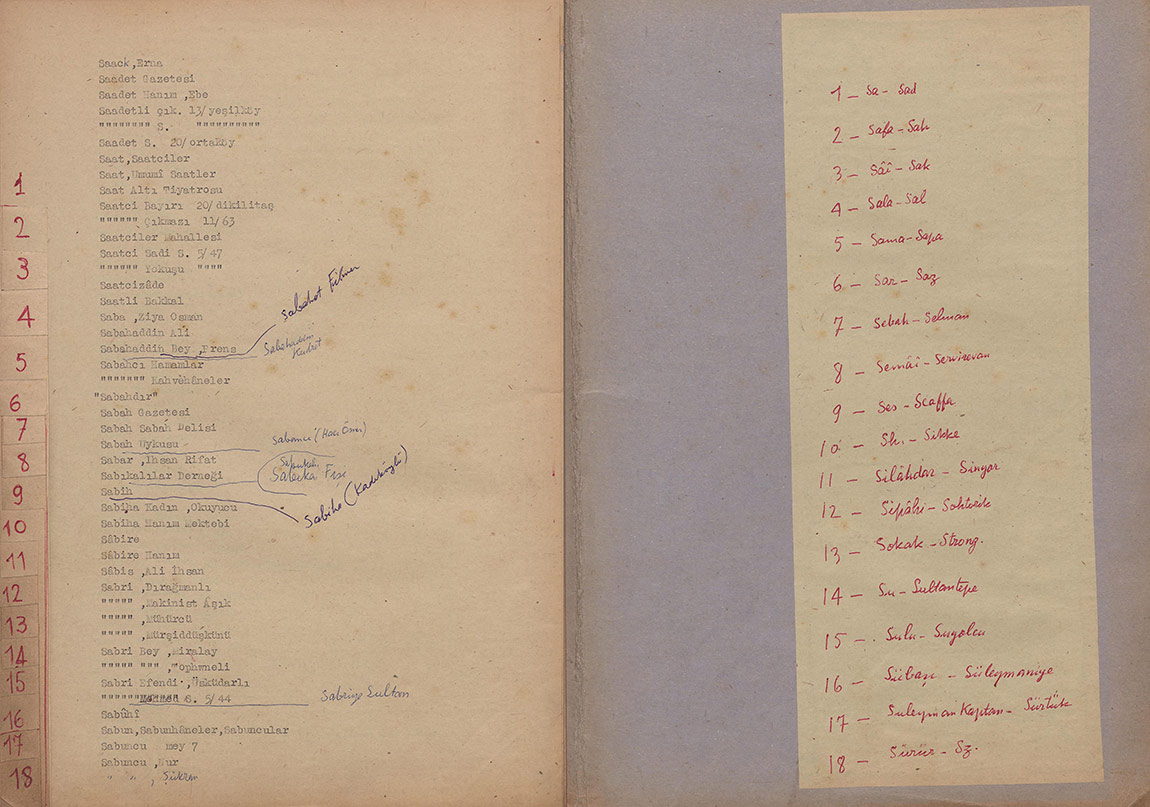 Saack ,Erna
Saadet Gazetesi
Saadet Hanım ,Ebe
Saadetli çık. 13/yeşilköy
"""""""" S. """"""""""
Saadet S. 20/ortaköy
Saat,Saatciler
Saat,Umumî Saatler
Saat Altı Tiyatrosu
Saatci Bayırı 20/dikilitaş
"""""" Çıkmazı 11/63
Saatciler Mahallesi
Saatci Sadi S. 5/47
"""""" Yokuşu """"
Saatcizâde
Saatli Bakkal
Saba ,Ziya Osman
Sabahat Filmer
Sabahaddin Ali
Sabahaddin Bey ,Prens
Sabahaddin
Kudret
Sabahcı Hamamlar
""""""" Kahvehâneler
"Sabahdır"
Sabah Gazetesi
Sabah Sabah Delisi
Sabah Uykusu
Sabancı (Hacı Ömer)
Sabar ,İhsan Rifat
Sabıkalılar Derneği
Sabıka Fişi
Sabih
Sabiha (Kadıköylü)
Sabiha Kadın ,Okuyucu
Sabiha Hanım Mektebi
Sâbire
Sâbire Hanım
Sâbis ,Ali İhsan
Sabri ,Dırağmanlı
""""" ,Makinist Âşık
""""" ,Mühürcü
""""" ,Mürşiddüşkünü
Sabri Bey ,Miralay
""""" """ ,Tophaneli
Sabri Efendi ,Üsküdarlı
S. 5/44
Sabriye Sultan
Sabûhî
Sabun,Sabunhâneler,Sabuncular
Sabuncu mey 7
Sabuncu ,Nur
" " , Şükran
1
2
3
4
5
6
7
8
9
10
11
12
13
14
15
16
17
18
1 – Sa – Sad
2 – Safa – Sah
3 – Sâi – Sak
4 – Sala – Sal
5 – Sama – Sapa
6 – Sar – Saz
7 – Sebah – Selman
8 – Semâi – Servirevan
9 – Ses – Scaffa
10 – Sh. – Sikke
11 – Silâhdar – Singer
12 – Sipâhi – Sohtorik
13 – Sokak – Strong.
14 – Su – Sultantepe
15 – Sulu – Suyolcu
16 – Sübaşı – Süleymaniye
17 – Suleyman Kaptan – Sürtük
18 – Sürür – Sz.